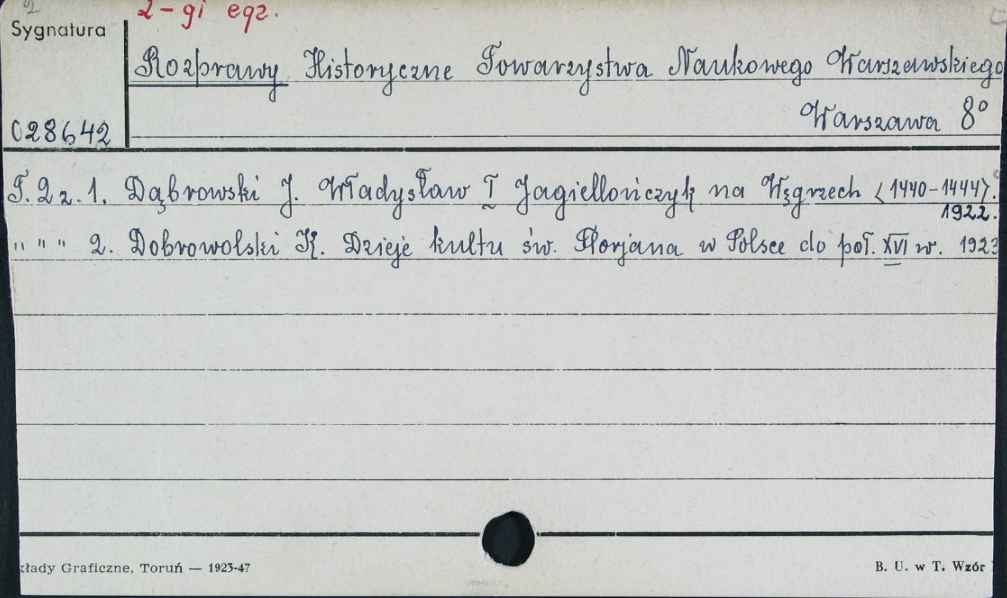 2-gi egz.
Sygnatura
Rozprawy Historyczne Towarzystwa Naukowego Warszawskiego
028642
Warszawa 8°
T. 2 z. 1. Dąbrowski J. Władysław I Jagiellończyk na Węgrzech (1440-1444).
1922.
" " " 2. Dobrowolski K. Dzieje kultu św. Florjana w Polsce do poł. XVI w. 1923
kłady Graficzne, Toruń — 1923-47
B. U. w T. Wzór